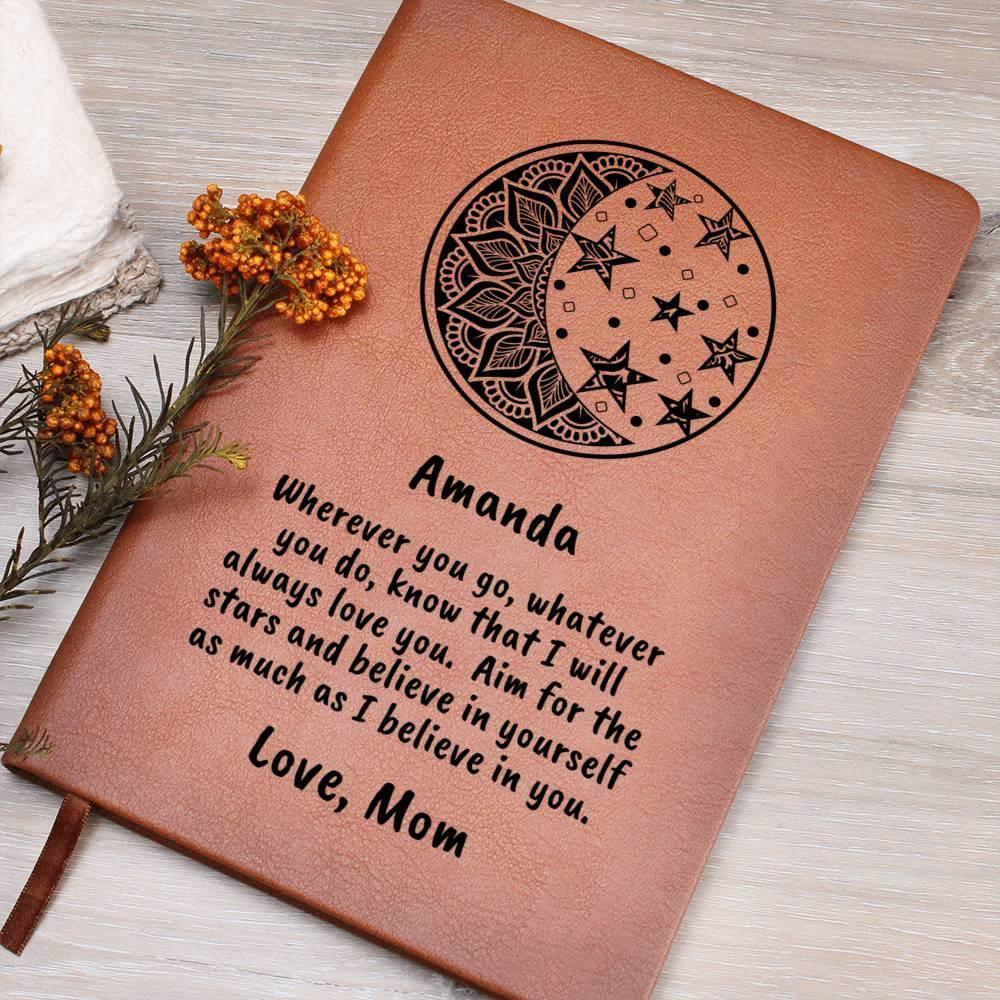 Amanda
Wherever you go, whatever
you do, know that I will
always love you.  Aim for the
stars and believe in yourself
as much as I believe in you.
Love, Mom